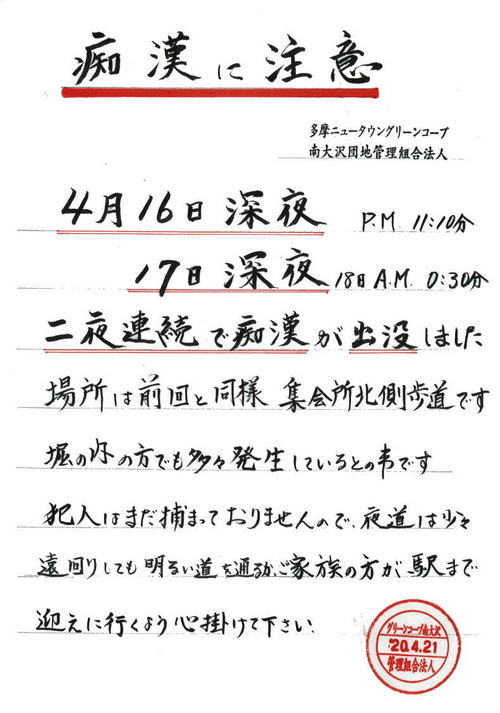 痴漢に注意
多摩ニュータウングリーンコープ
南大沢団地管理組合法人
4月16日深夜 P.M. 11:10分
17日深夜 18日A.M. 0:30分
二夜連続で痴漢が出没しました
場所は前回と同様 集会所北側歩道です
堀の内の方でも多々発生しているとの事です
犯人はまだ捕まっておりませんので、夜道は少々
遠回りしても明るい道を通るか、ご家族の方が駅まで
迎えに行くよう心掛けて下さい.
グリーンコープ南大沢
'20.4.21
管理組合法人